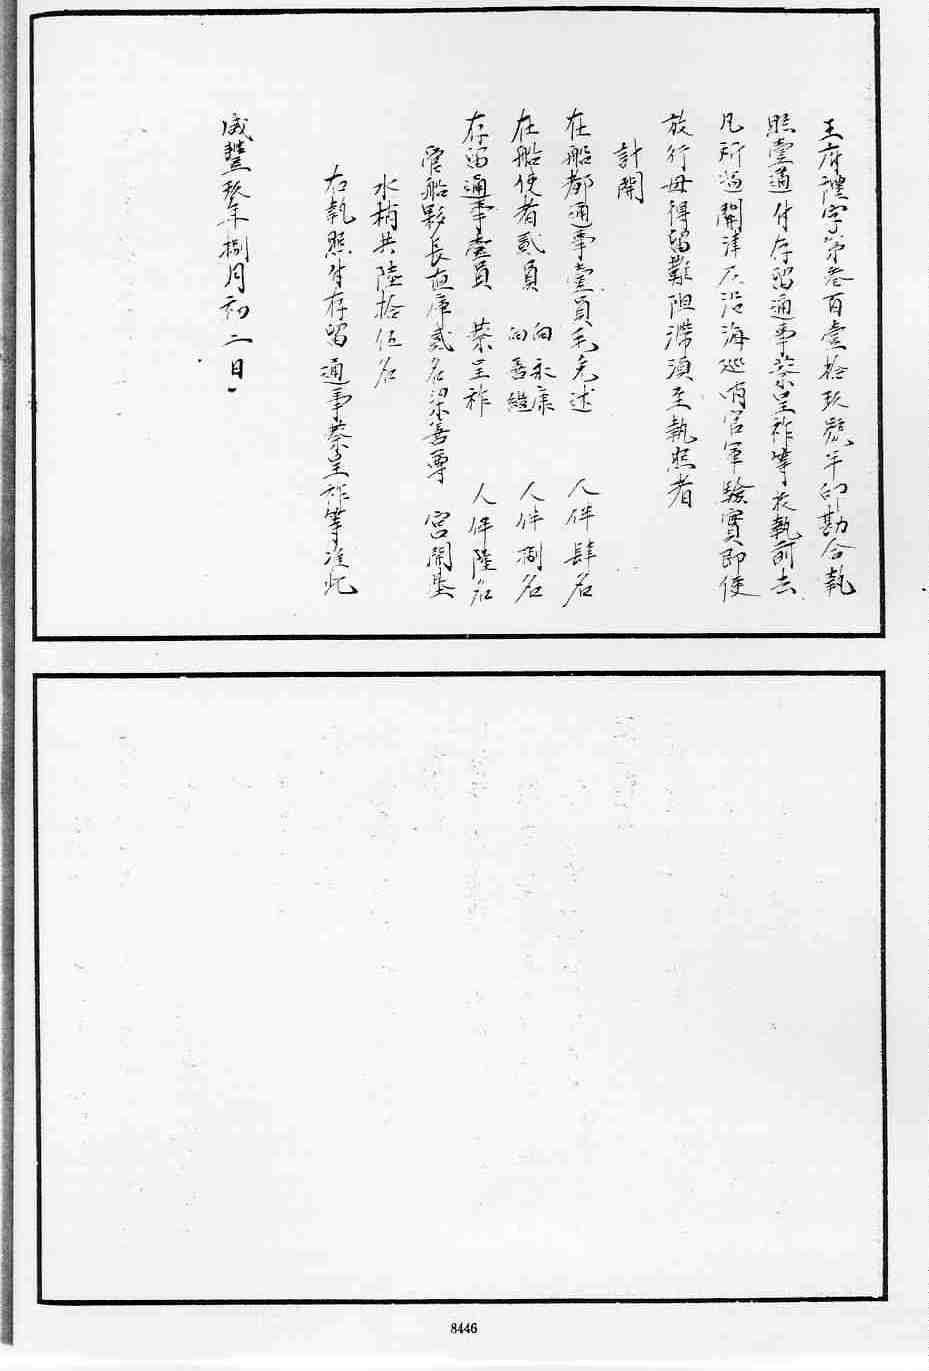 王府禮字第壹百壹拾玖號半印勘合執
照壹道付存留通事蔡呈祚等收執前去
凡所過關津及沿海巡哨官軍驗實即便
放行毋得留難阻滯須至執照者
計開
在船都通事壹員毛克述 人伴肆名
在船使者貳員 向永康 向善繼 人伴捌名
存留通事壹員 蔡呈祚 人伴陸名
管船夥長直庫貳名梁善尊 宮開基
水梢共陸拾伍名
右執照付存留通事蔡呈祚等准此
咸豐玖年捌月初二日
8446